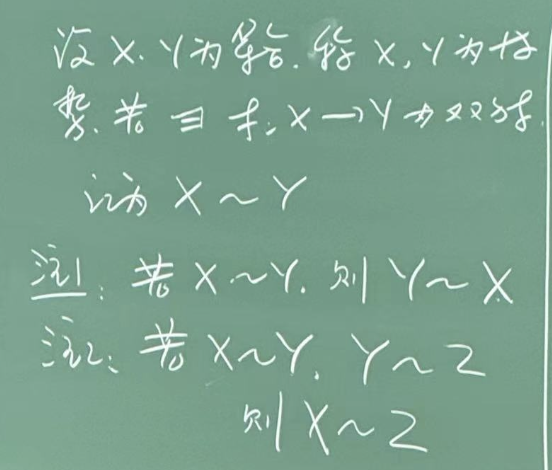 设 X、Y为集合. 称 X, Y 为等
势. 若 ∃ f: X→Y 为双射.
记为 X ~ Y
注1: 若 X~Y. 则 Y~X
注2: 若 X~Y, Y~Z
则 X~Z